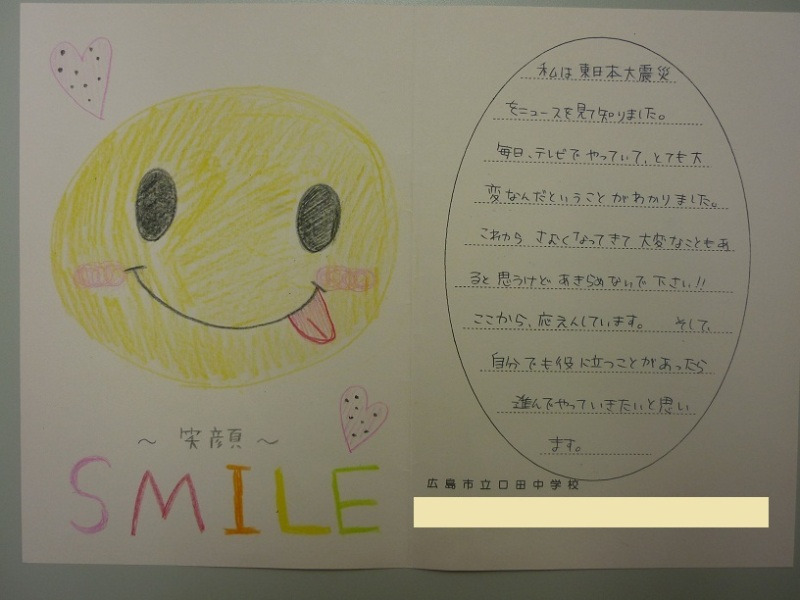 ～ 笑顔 ～
SMILE
私は東日本大震災
をニュースを見て知りました。
毎日、テレビでやっていて、とても大
変なんだということがわかりました。
これから さむくなってきて 大変なこともあ
ると思うけど あきらめないで下さい!!
ここから、応えんしています。 そして、
自分でも役に立つことがあったら
進んでやっていきたいと思い
ます。
広島市立口田中学校